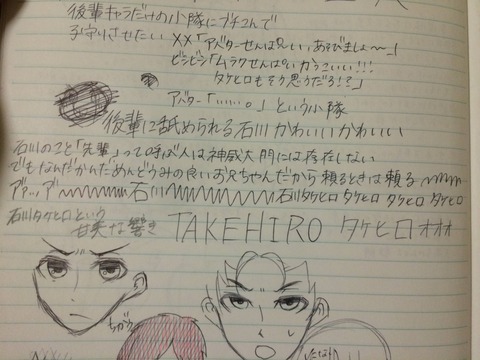 後輩キャラだけの小隊にブチこんで
子守りさせたい ××「アバターせんぱ〜い、あそびましょ〜」
ビシビシ「ムラクせんぱいかっこいい!!!
タケヒロもそう思うだろ!?」
アバター「……。」という小隊
後輩に舐められる石川かわいいかわいい
石川のこと「先輩」って呼ぶ人は神威大門には存在しない
でもなんだかんだめんどうみの良いお兄ちゃんだから頼るときは頼る
アァッ,,ア〜 石川 石川タケヒロ タケヒロ タケヒロ タケヒロ
石川タケヒロという
甘美な響き TAKEHIRO タケヒロオオオ
ちがう